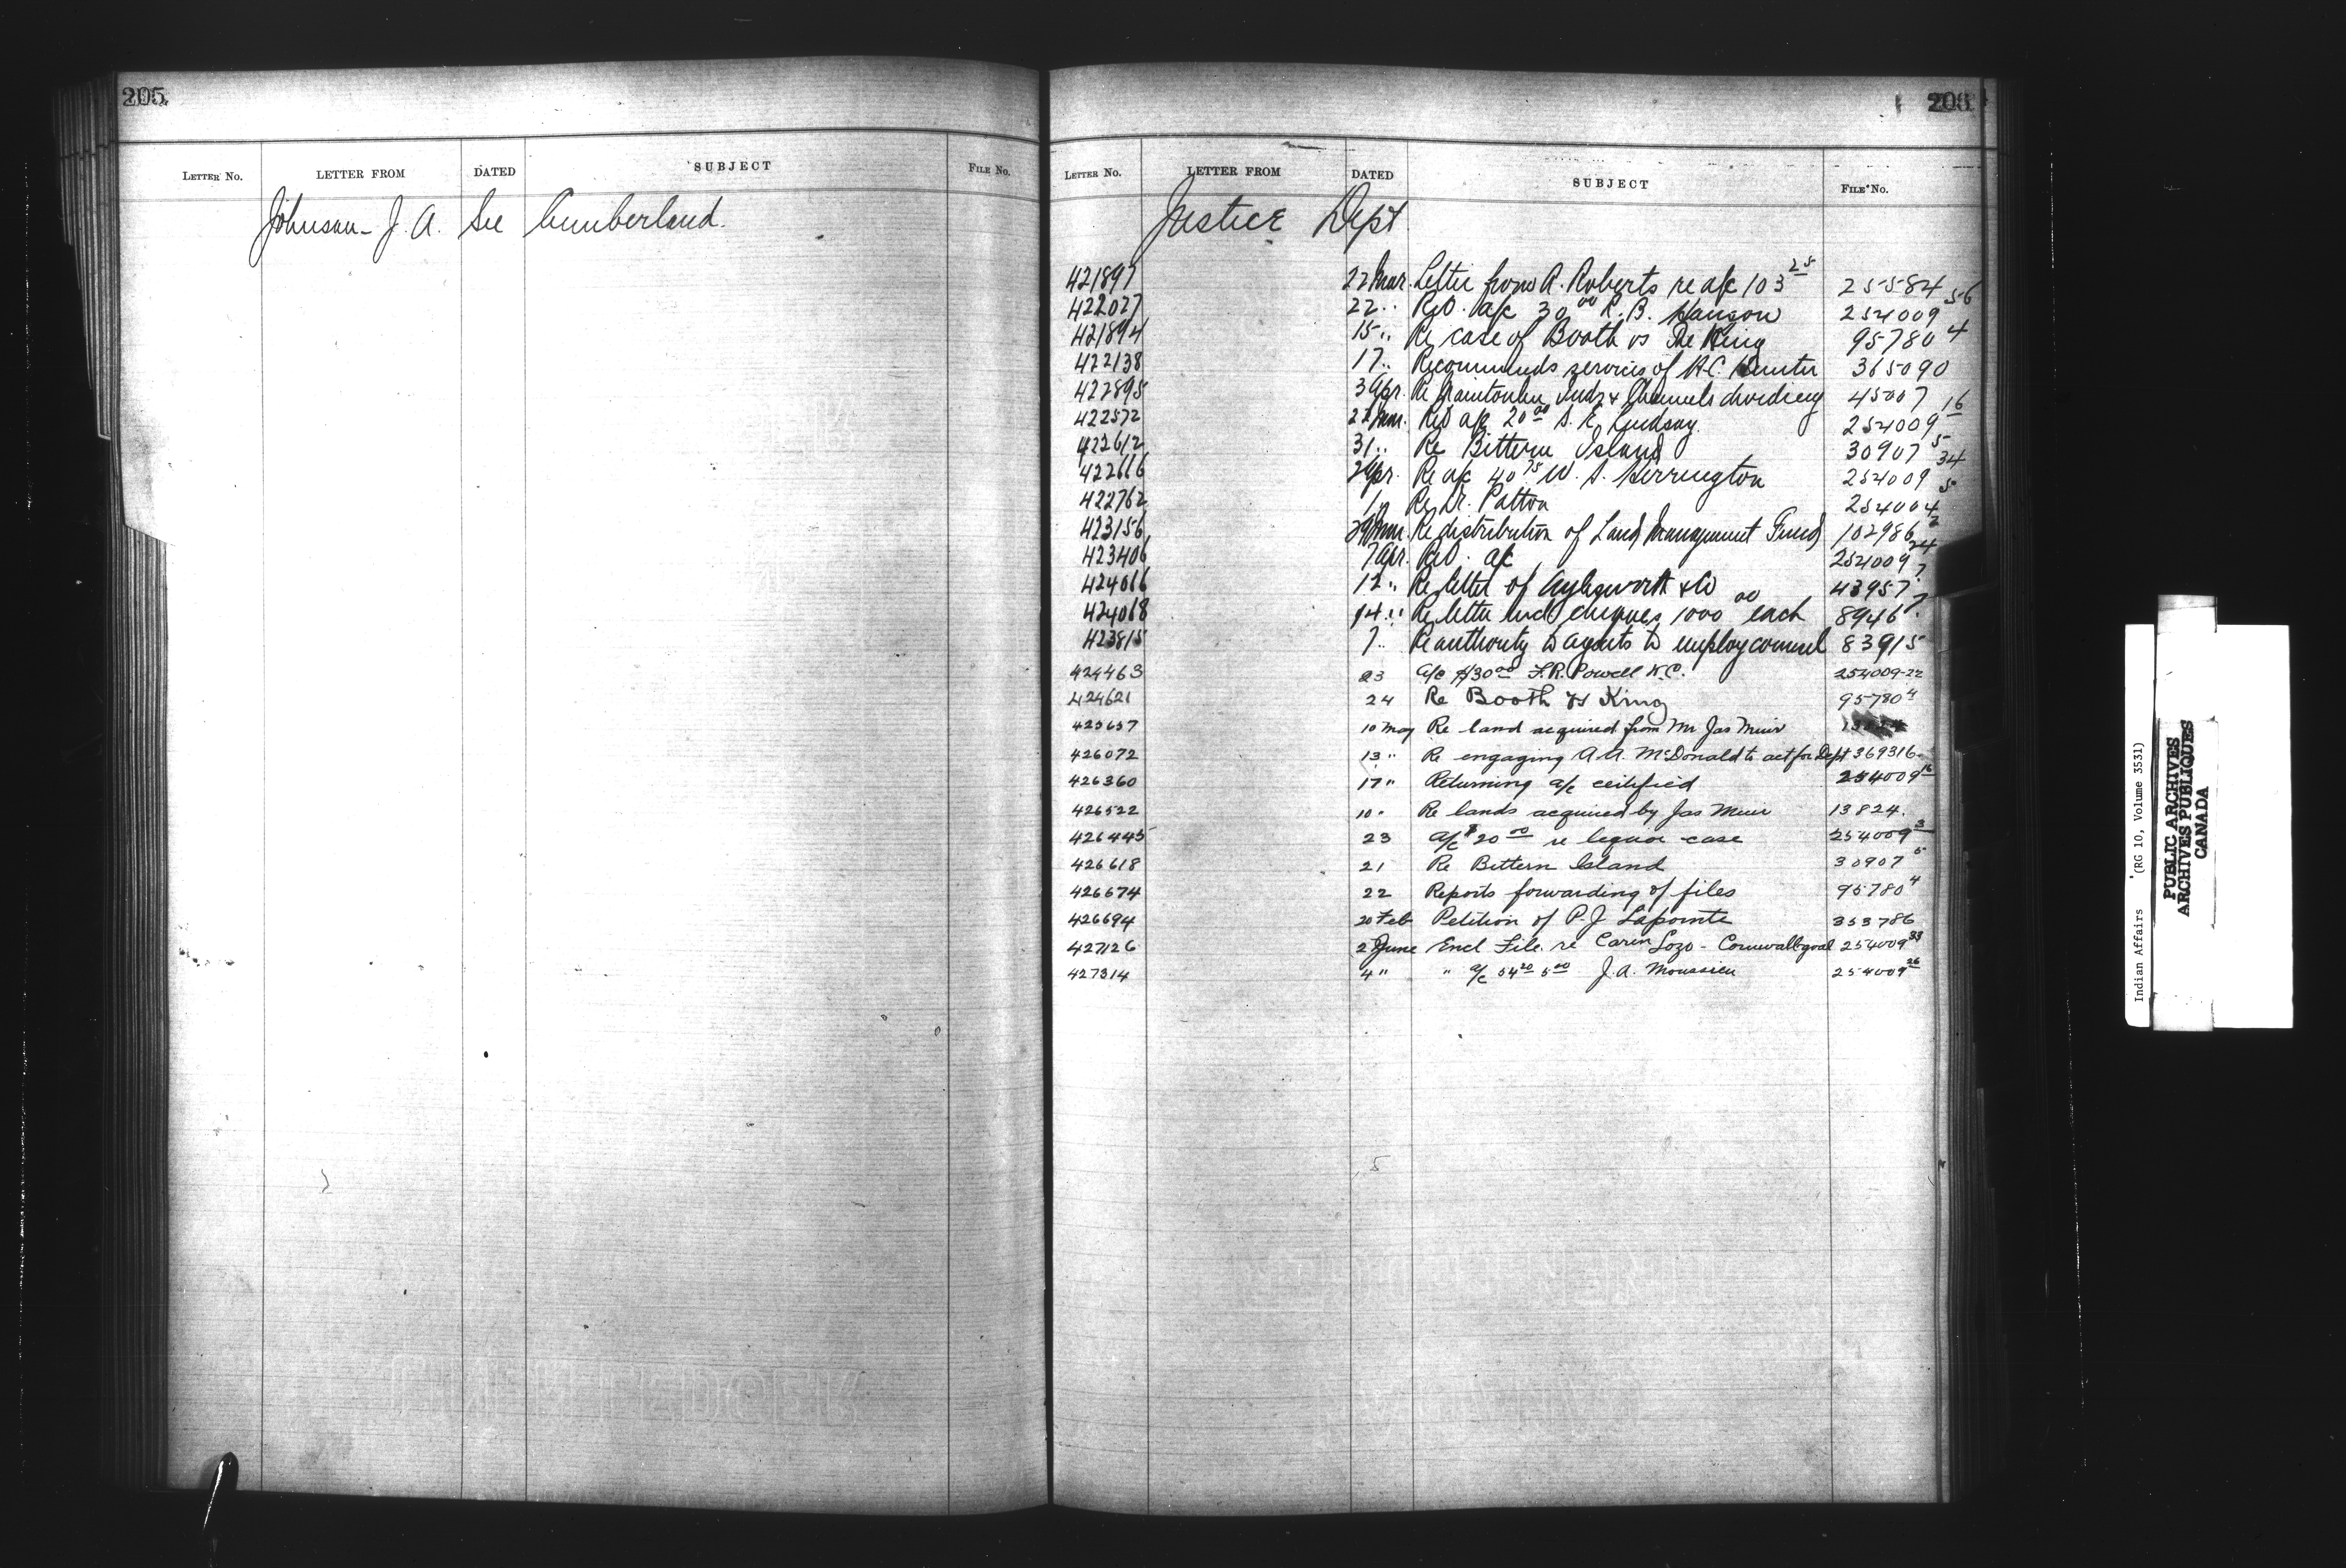 205
LETTER No. LETTER FROM DATED SUBJECT FILE No.
Johnson - J. A. See Cumberland.
LETTER No. LETTER FROM DATED SUBJECT FILE No.
Justice Dept
421897 22 Mar. Letter from A. Roberts re a/c 103 25 25584
422027 22 " Ret'd. a/c 30 00 R. B. Hanson 254009 56
421894 15 " Re case of Booth vs The King 95780 4
422138 17 " Recommends services of H.C. 365090
422895 3 Apr. Re Inds & Channels dividing 45007
422572 22 Mar. Ret'd a/c 20 00 S. E. Lindsay. 254009 16
422612 31 " Re Bittern Island 30907 5
422616 2 Apr. Re a/c 40 75 W. S. Herrington 254009 34
422762 1 " Re Dr. Patton 254004 5
423156 29 Mar. Re distribution of Land Management Fund 102986 2
423406 7 Apr. Ret'd. a/c 254009 24
424016 12 " Re letter of Aylesworth & Co 43957 ?
424018 14 " Re letter incl cheques 1000 00 each 8946 ?
423815 7 " Re authority to agents to employ counsel 83915
424463 23 a/c $30 00 F.R. Powell K.C. 254009-22
424621 24 Re Booth vs King 95780 4
425657 10 May Re land acquired from Mr Jas Muir
426072 13 " Re engaging A.A. McDonald to act for Dept 369316.
426360 17 " Returning a/c certified 254009 16
426522 10 " Re lands acquired by Jas Muir 13824.
426445 23 a/c $20 00 re liquor case 254009 3
426618 21 Re Bittern Island 30907 5
426674 22 Reports forwarding of files 95780 4
426694 20 Feb Petition of P.J. Lapointe 353786
427126 2 June Encl File re Caren Lozo - Cornwall goal 254009 33
427314 4 " " a/c 54 20 5 00 J.A. Moussieu 254009 26
Indian Affairs (RG 10, Volume 3531)
PUBLIC ARCHIVES
ARCHIVES PUBLIQUES
CANADA